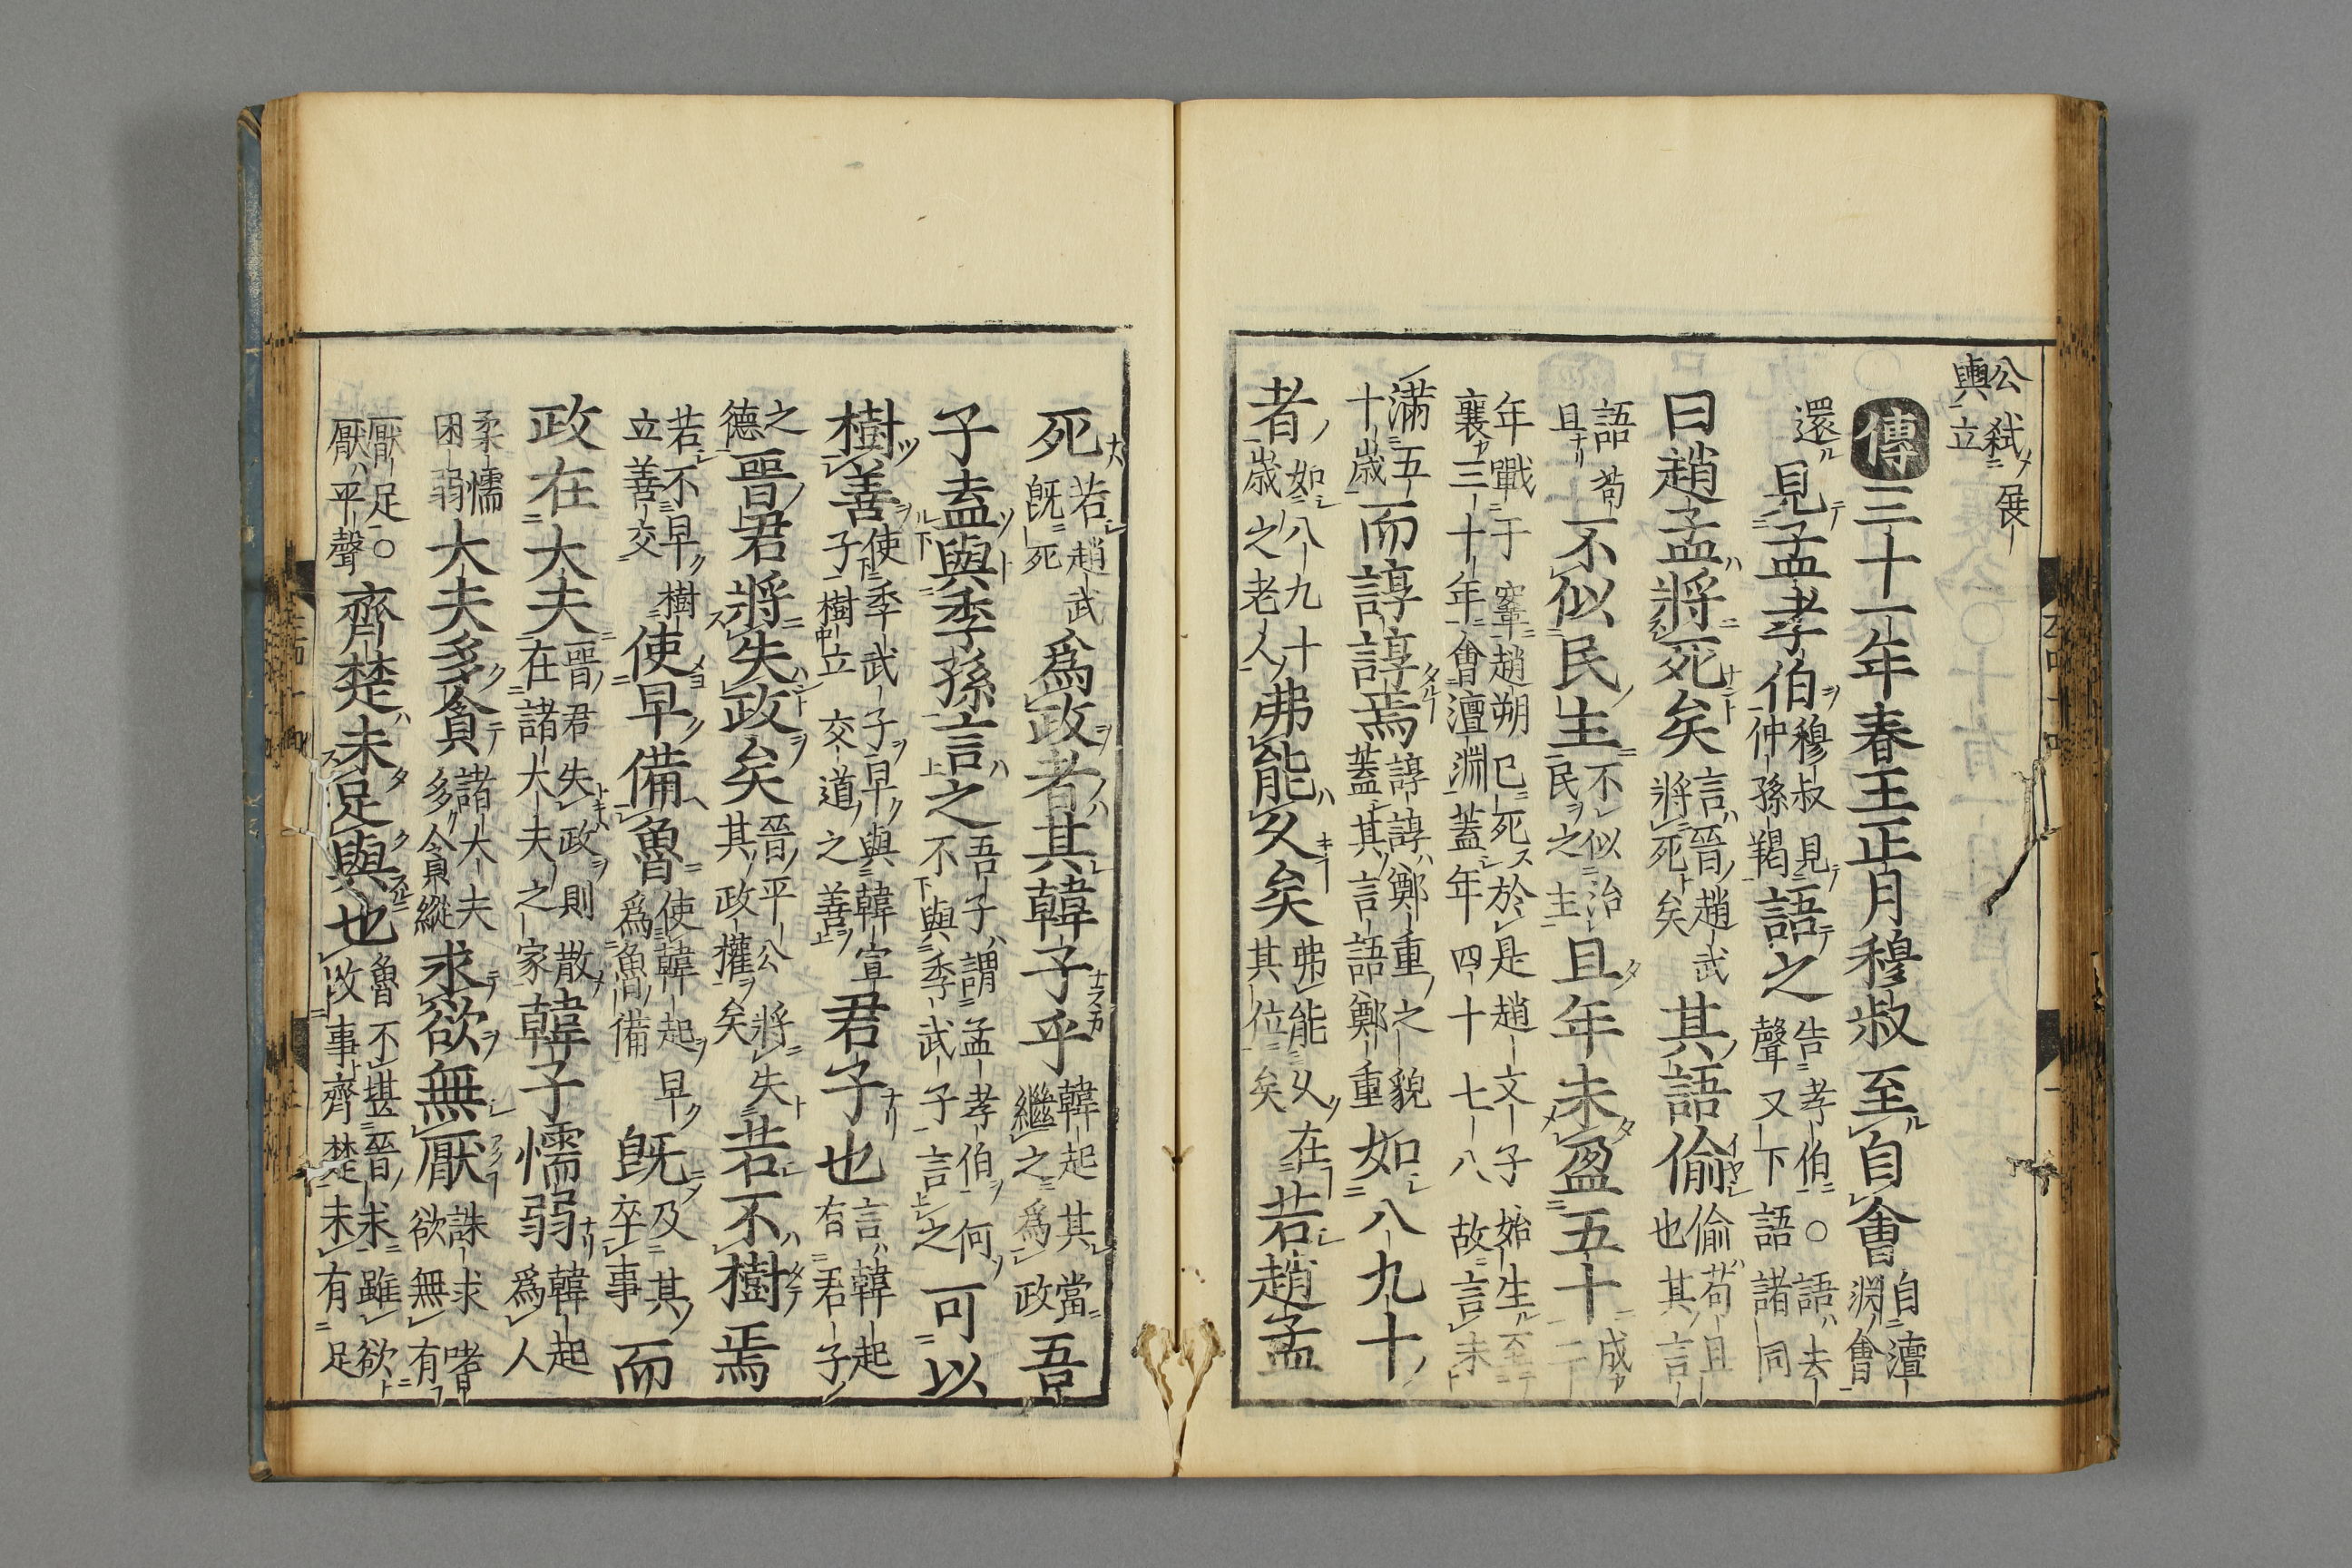 公弑展
輿立
傳三十一年春王正月穆叔至自會自澶
淵會
還見孟孝伯穆叔見
仲孫羯語之告孝伯○語去
聲又下語諸同
曰趙孟將死矣言晉趙武
將死矣其語偷偷苟且
也其言
語苟
且不似民主不似治
民之主且年未盈五十成
二
年戰于鞌趙朔已死於是趙文子始生至
襄三十年會澶淵蓋年四十七八故言未
滿五
十歲而諄諄焉諄諄鄭重之貌
蓋其言語鄭重如八九十
者如八九十
歲之老人弗能久矣弗能久在
其位矣若趙孟
死若趙武
既死為政者其韓子乎韓起其當
繼之為政吾
子盍與季孫言之吾子謂孟孝伯何
不與季武子言之可以
樹善使季武子早與韓宣
子樹立交道之善君子也言韓起
有君子
之
德晉君將失政矣晉平公將失
其政權矣若不樹焉
若不早樹
立善交使早備魯使韓起早
為魯備既及其
卒事而
政在大夫晉君失政則散
在諸大夫之家韓子懦弱韓起
為人
柔懦
困弱大夫多貪諸大夫
多貪縱求欲無厭誅求嗜
欲無有
厭足○
厭平聲齊楚未足與也魯不堪晉求雖欲
改事齊楚未有足